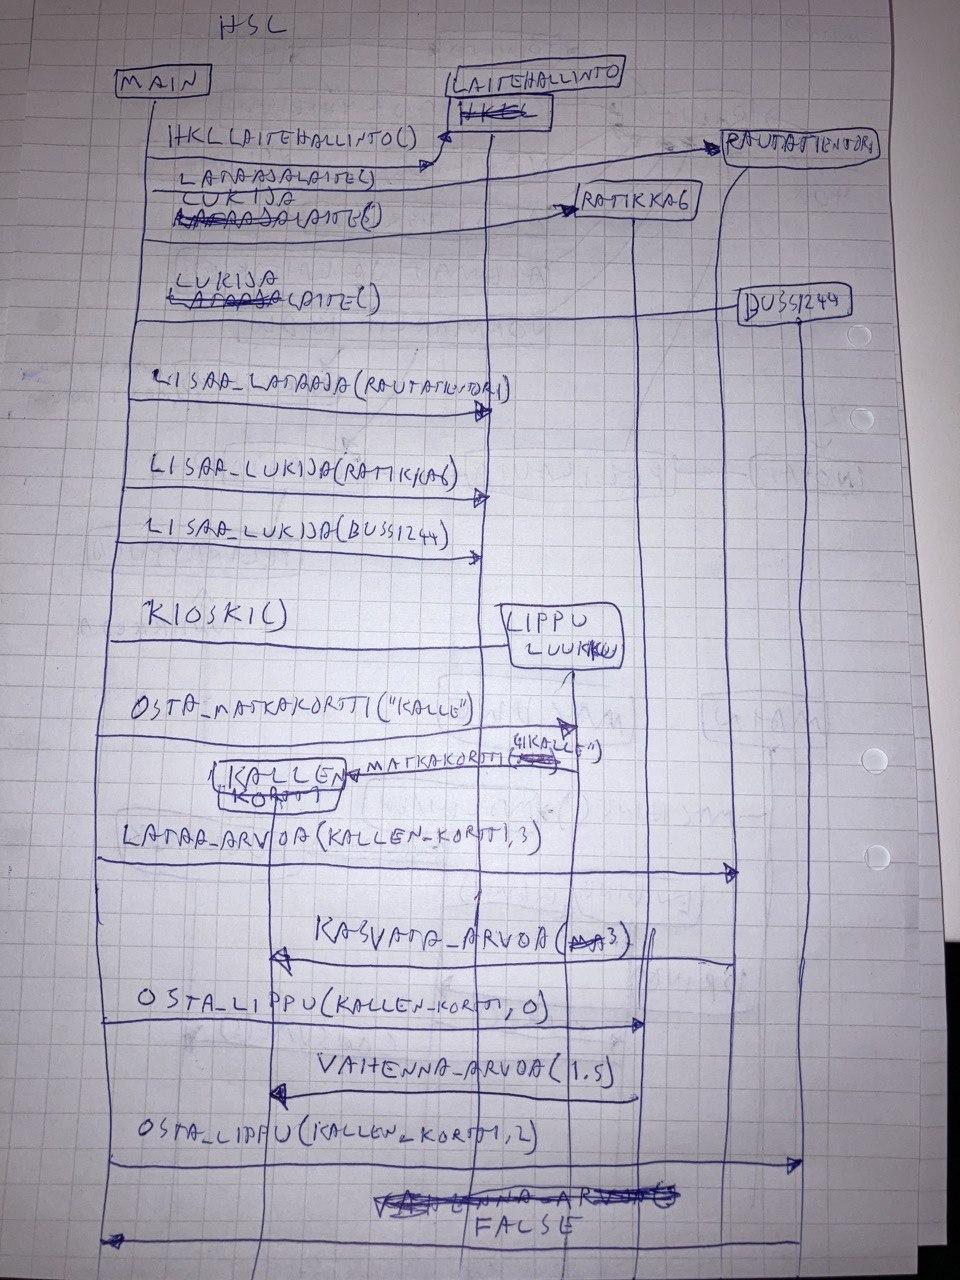 HSL
MAIN
LAITEHALLINTO
HKLLAITEHALLINTO()
RAUTATIENTORI
LATAAJALAITE()
LUKIJA
LAITE()
RATIKKA6
LUKIJA
LAITE()
BUSSI244
LISAA_LATAAJA(RAUTATIENTORI)
LISAA_LUKIJA(RATIKKA6)
LISAA_LUKIJA(BUSSI244)
KIOSKI()
LIPPU
LUUKKU
OSTA_MATKAKORTTI("KALLE")
MATKAKORTTI("KALLE")
KALLEN
KORTTI
LATAA_ARVOA(KALLEN_KORTTI,3)
KASVATA_ARVOA(3)
OSTA_LIPPU(KALLEN_KORTTI,0)
VAHENNA_ARVOA(1.5)
OSTA_LIPPU(KALLEN_KORTTI,2)
FALSE